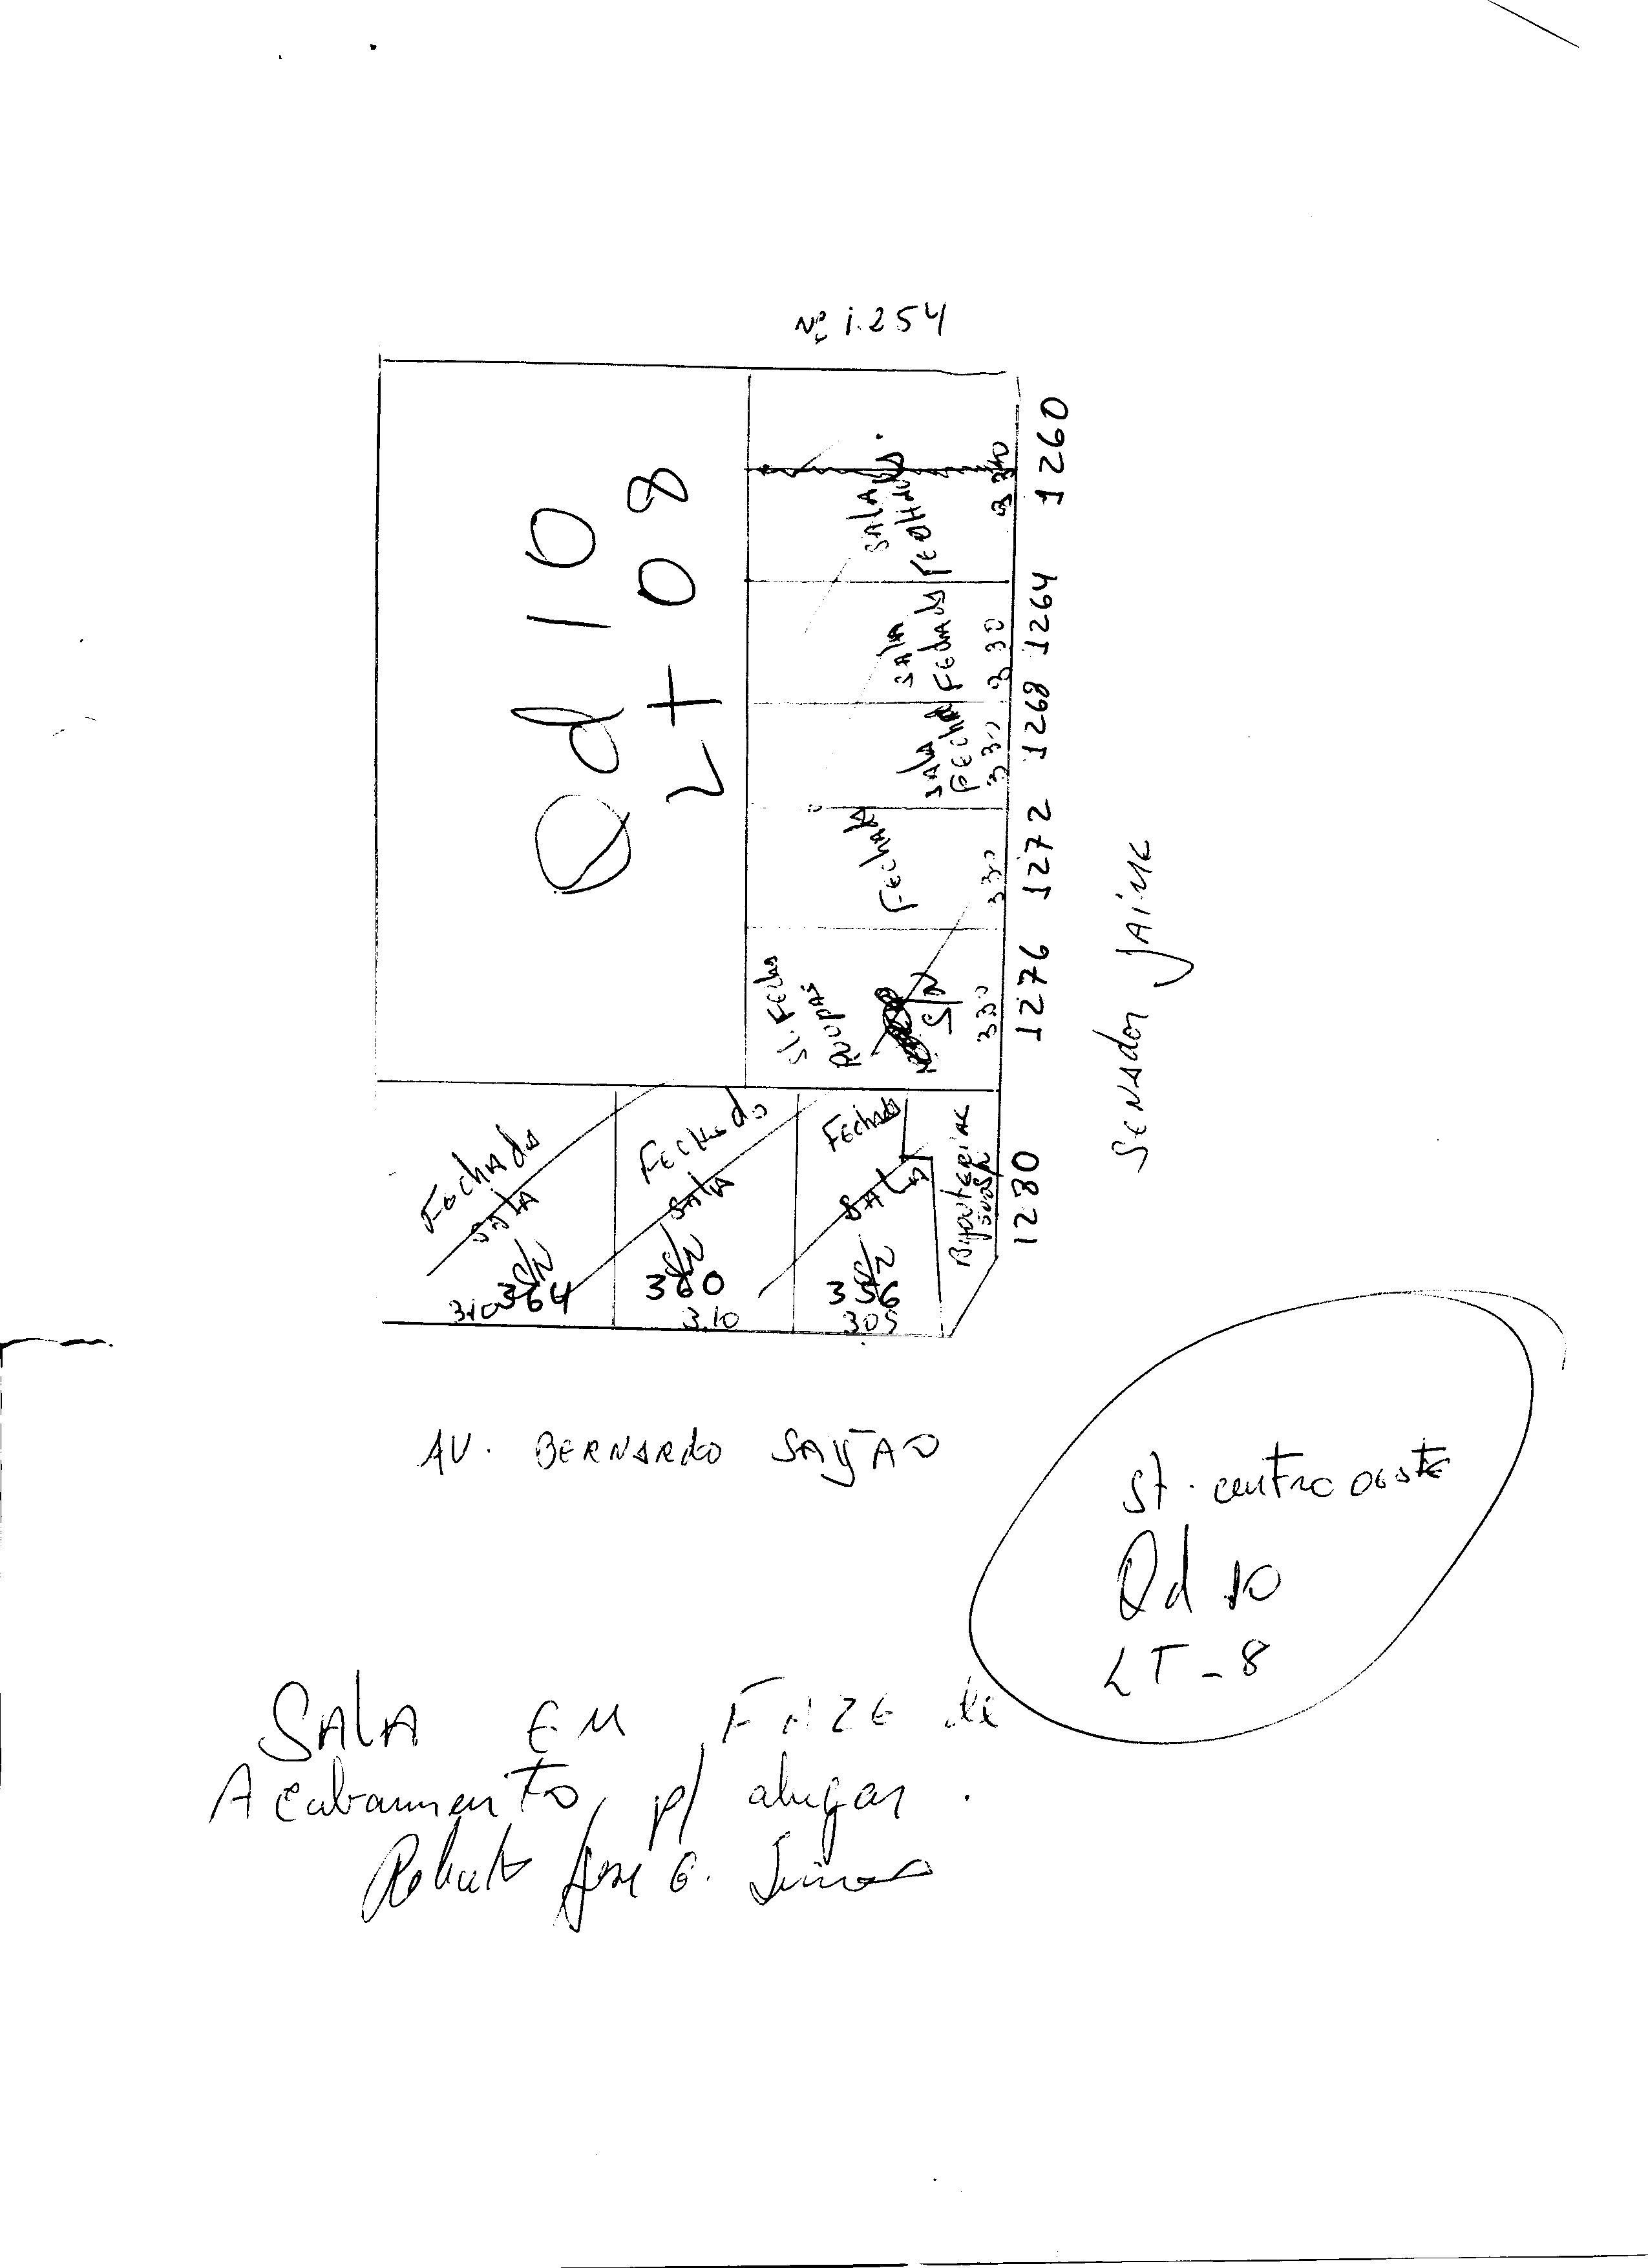 Nº 1.254
Qd 10
LT 08
SALA
FECHADA
3 30
1260
SALA
FEchada
3 30
1264
SALA
FEcha
3 30
1268
FEchada
3 30
1272
SL. FEcha
ROUPAS
S/N
330
1276
SENAdOR JAIME
FEchada
SALA
S/N
364
310
FEchado
SALA
S/N
360
3.10
FEchado
SALA
S/N
356
305
BijoutERIAS
1280
AV. BERNARdO SAYÃO
St. centro oeste
Qd 10
LT - 8
SALA EM FAZE de
Acabamento p/ alugar.
Roberto José G.